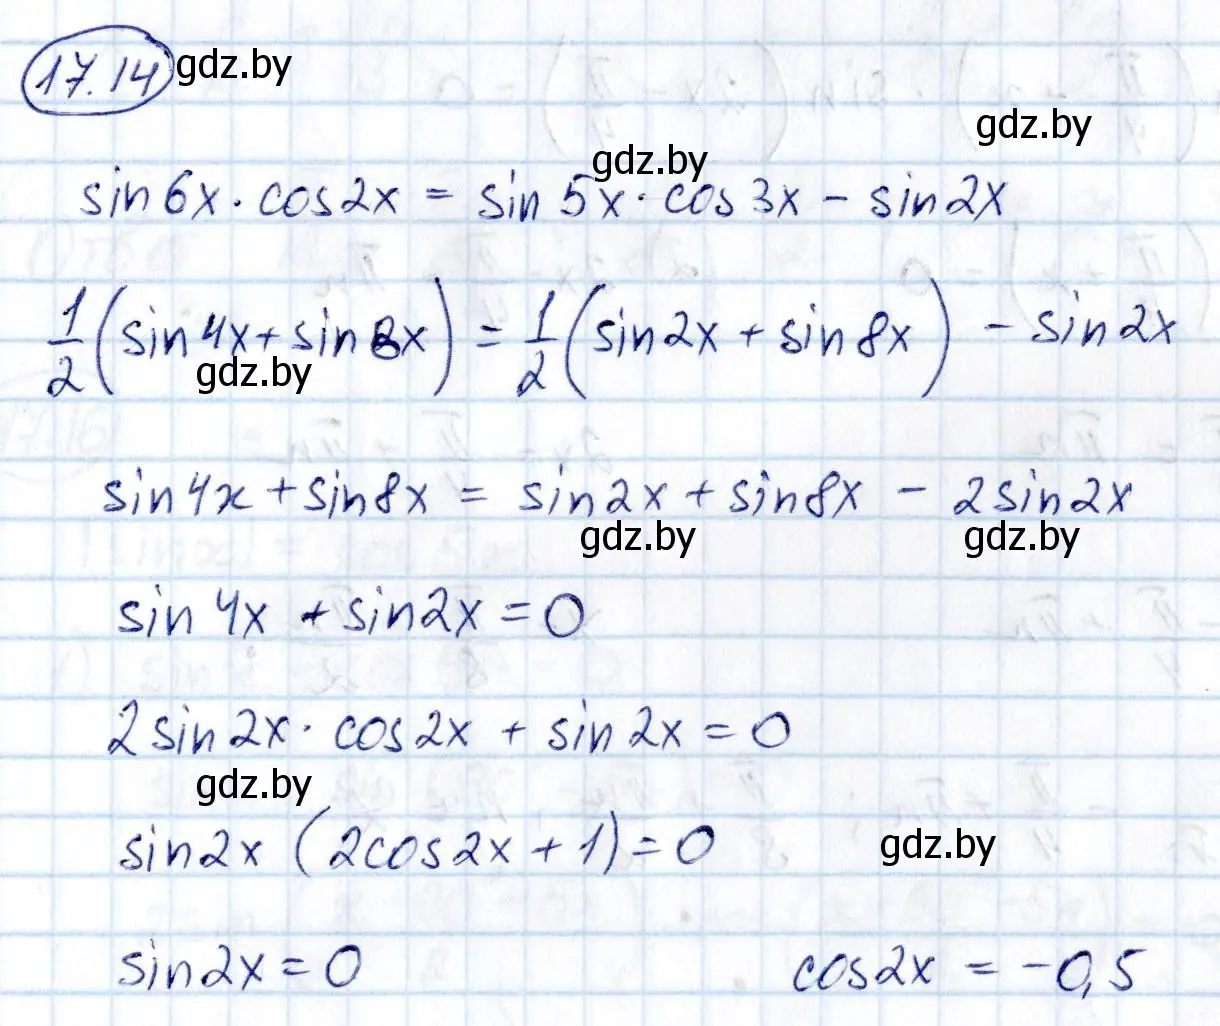 17.14 gdz.by
gdz.by
gdz.by
sin 6x · cos 2x = sin 5x · cos 3x − sin 2x
1/2 (sin 4x + sin 8x) = 1/2 (sin 2x + sin 8x) − sin 2x
gdz.by
sin 4x + sin 8x = sin 2x + sin 8x − 2 sin 2x
gdz.by gdz.by
sin 4x + sin 2x = 0
2 sin 2x · cos 2x + sin 2x = 0
gdz.by
sin 2x (2cos 2x + 1) = 0 gdz.by
sin 2x = 0 cos 2x = −0,5